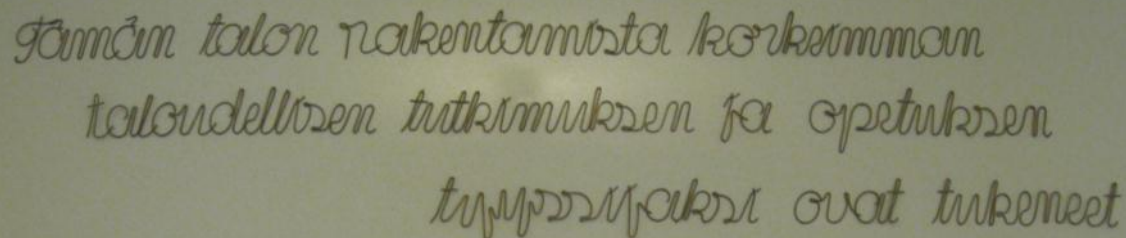 Tämän talon rakentamista korkeimman
taloudellisen tutkimuksen ja opetuksen
tyyssijaksi ovat tukeneet